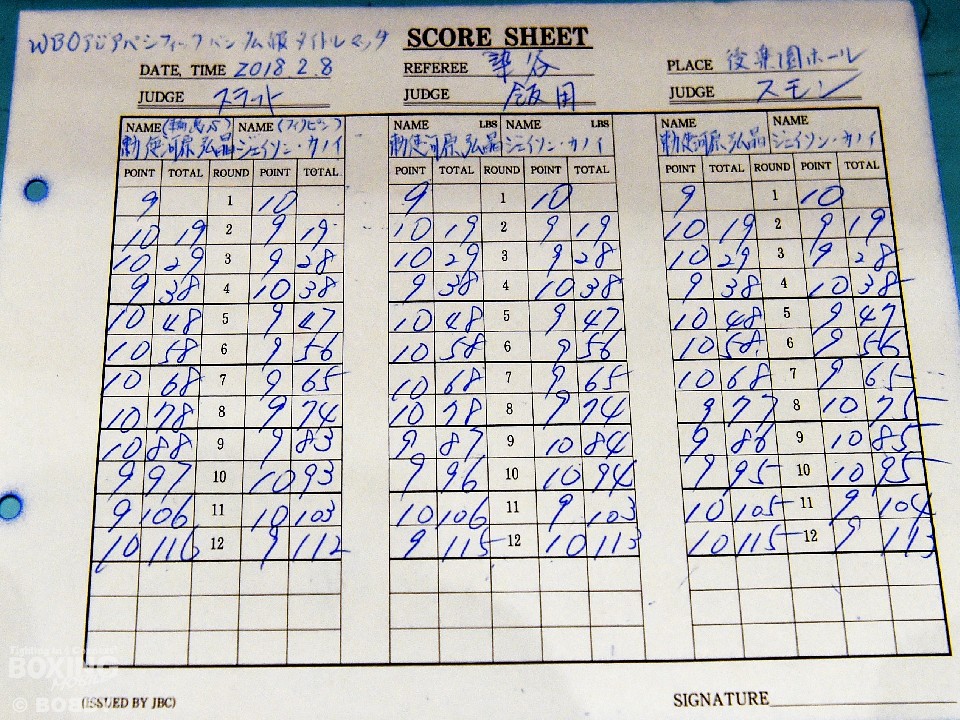 WBOアジアパシフィックバンタム級タイトルマッチ SCORE SHEET
DATE, TIME 2018 2.8 REFEREE 染谷 PLACE 後楽園ホール
JUDGE スラット JUDGE 飯田 JUDGE スモン
NAME (輪島S) NAME (フィリピン) NAME LBS NAME LBS NAME NAME
勅使河原弘晶 ジェイソン・カノイ 勅使河原弘晶 ジェイソン・カノイ 勅使河原弘晶 ジェイソン・カノイ
POINT TOTAL ROUND POINT TOTAL POINT TOTAL ROUND POINT TOTAL POINT TOTAL ROUND POINT TOTAL
9 1 10 9 1 10 9 1 10
10 19 2 9 19 10 19 2 9 19 10 19 2 9 19
10 29 3 9 28 10 29 3 9 28 10 29 3 9 28
9 38 4 10 38 9 38 4 10 38 9 38 4 10 38
10 48 5 9 47 10 48 5 9 47 10 48 5 9 47
10 58 6 9 56 10 58 6 9 56 10 58 6 9 56
10 68 7 9 65 10 68 7 9 65 10 68 7 9 65
10 78 8 9 74 10 78 8 9 74 9 77 8 10 75
10 88 9 9 83 9 87 9 10 84 9 86 9 10 85
9 97 10 10 93 9 96 10 10 94 9 95 10 10 95
9 106 11 10 103 10 106 11 9 103 10 105 11 9 104
10 116 12 9 112 9 115 12 10 113 10 115 12 9 113
BOXING
(ISSUED BY JBC) SIGNATURE